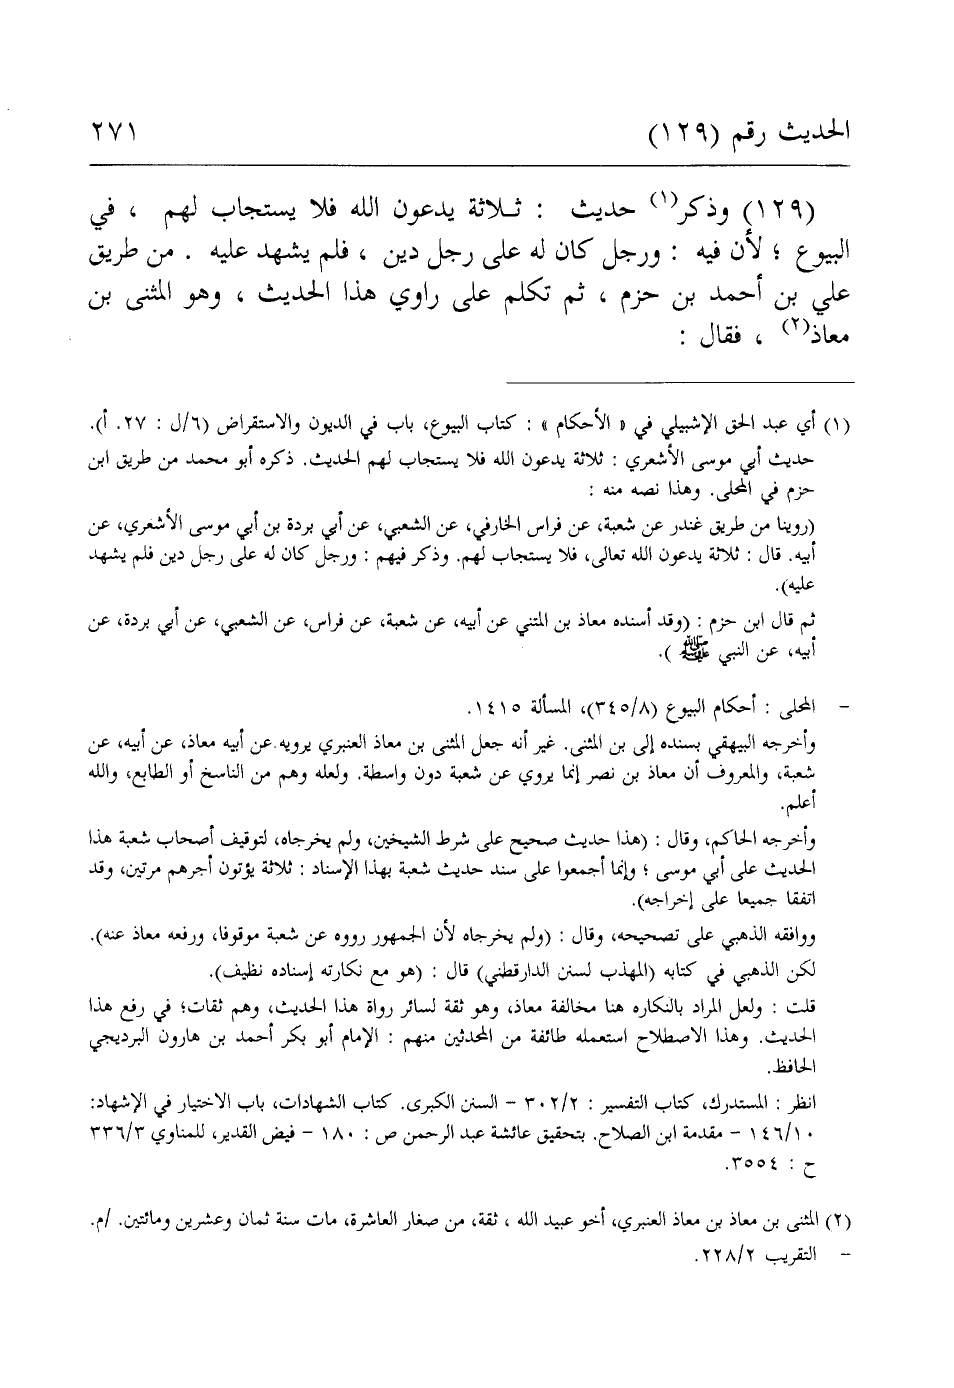 الحديث رقم (١٢٩) ٢٧١
(١٢٩) وذكر(١) حديث : ثلاثة يدعون الله فلا يستجاب لهم ، في
البيوع ؛ لأن فيه : ورجل كان له على رجل دين ، فلم يشهد عليه . من طريق
علي بن أحمد بن حزم ، ثم تكلم على راوي هذا الحديث ، وهو المثنى بن
معاذ(٢) ، فقال :
(١) أي عبد الحق الإشبيلي في « الأحكام » : كتاب البيوع، باب في الديون والاستقراض (٦/ل : ٢٧. أ).
حديث أبي موسى الأشعري : ثلاثة يدعون الله فلا يستجاب لهم الحديث. ذكره أبو محمد من طريق ابن
حزم في المحلى. وهذا نصه منه :
(روينا من طريق غندر عن شعبة، عن فراس الخارفي، عن الشعبي، عن أبي بردة بن أبي موسى الأشعري، عن
أبيه. قال : ثلاثة يدعون الله تعالى، فلا يستجاب لهم. وذكر فيهم : ورجل كان له على رجل دين فلم يشهد
عليه).
ثم قال ابن حزم : (وقد أسنده معاذ بن المتني عن أبيه، عن شعبة، عن فراس، عن الشعبي، عن أبي بردة، عن
أبيه، عن النبي ﷺ ).
- المحلى : أحكام البيوع (٣٤٥/٨)، المسألة ١٤١٥.
وأخرجه البيهقي بسنده إلى بن المثنى. غير أنه جعل المثنى بن معاذ العنبري يرويه عن أبيه معاذ، عن أبيه، عن
شعبة، والمعروف أن معاذ بن نصر إنما يروي عن شعبة دون واسطة. ولعله وهم من الناسخ أو الطابع، والله
أعلم.
وأخرجه الحاكم، وقال : (هذا حديث صحيح على شرط الشيخين، ولم يخرجاه، لتوقيف أصحاب شعبة هذا
الحديث على أبي موسى ؛ وإنما أجمعوا على سند حديث شعبة بهذا الإسناد : ثلاثة يؤتون أجرهم مرتين، وقد
اتفقا جميعا على إخراجه).
ووافقه الذهبي على تصحيحه، وقال : (ولم يخرجاه لأن الجمهور رووه عن شعبة موقوفا، ورفعه معاذ عنه).
لكن الذهبي في كتابه (المهذب لسنن الدارقطني) قال : (هو مع نكارته إسناده نظيف).
قلت : ولعل المراد بالنكاره هنا مخالفة معاذ، وهو ثقة لسائر رواة هذا الحديث، وهم ثقات؛ في رفع هذا
الحديث. وهذا الاصطلاح استعمله طائفة من المحدثين منهم : الإمام أبو بكر أحمد بن هارون البرديجي
الحافظ.
انظر : المستدرك، كتاب التفسير : ٣٠٢/٢ - السنن الكبرى. كتاب الشهادات، باب الاختيار في الإشهاد:
١٤٦/١٠ - مقدمة ابن الصلاح. بتحقيق عائشة عبد الرحمن ص : ١٨٠ - فيض القدير، للمناوي ٣٣٦/٣
ح : ٣٥٥٤.
(٢) المثنى بن معاذ بن معاذ العنبري، أخو عبيد الله ، ثقة، من صغار العاشرة، مات سنة ثمان وعشرين ومائتين. /م.
- التقريب ٢٢٨/٢.